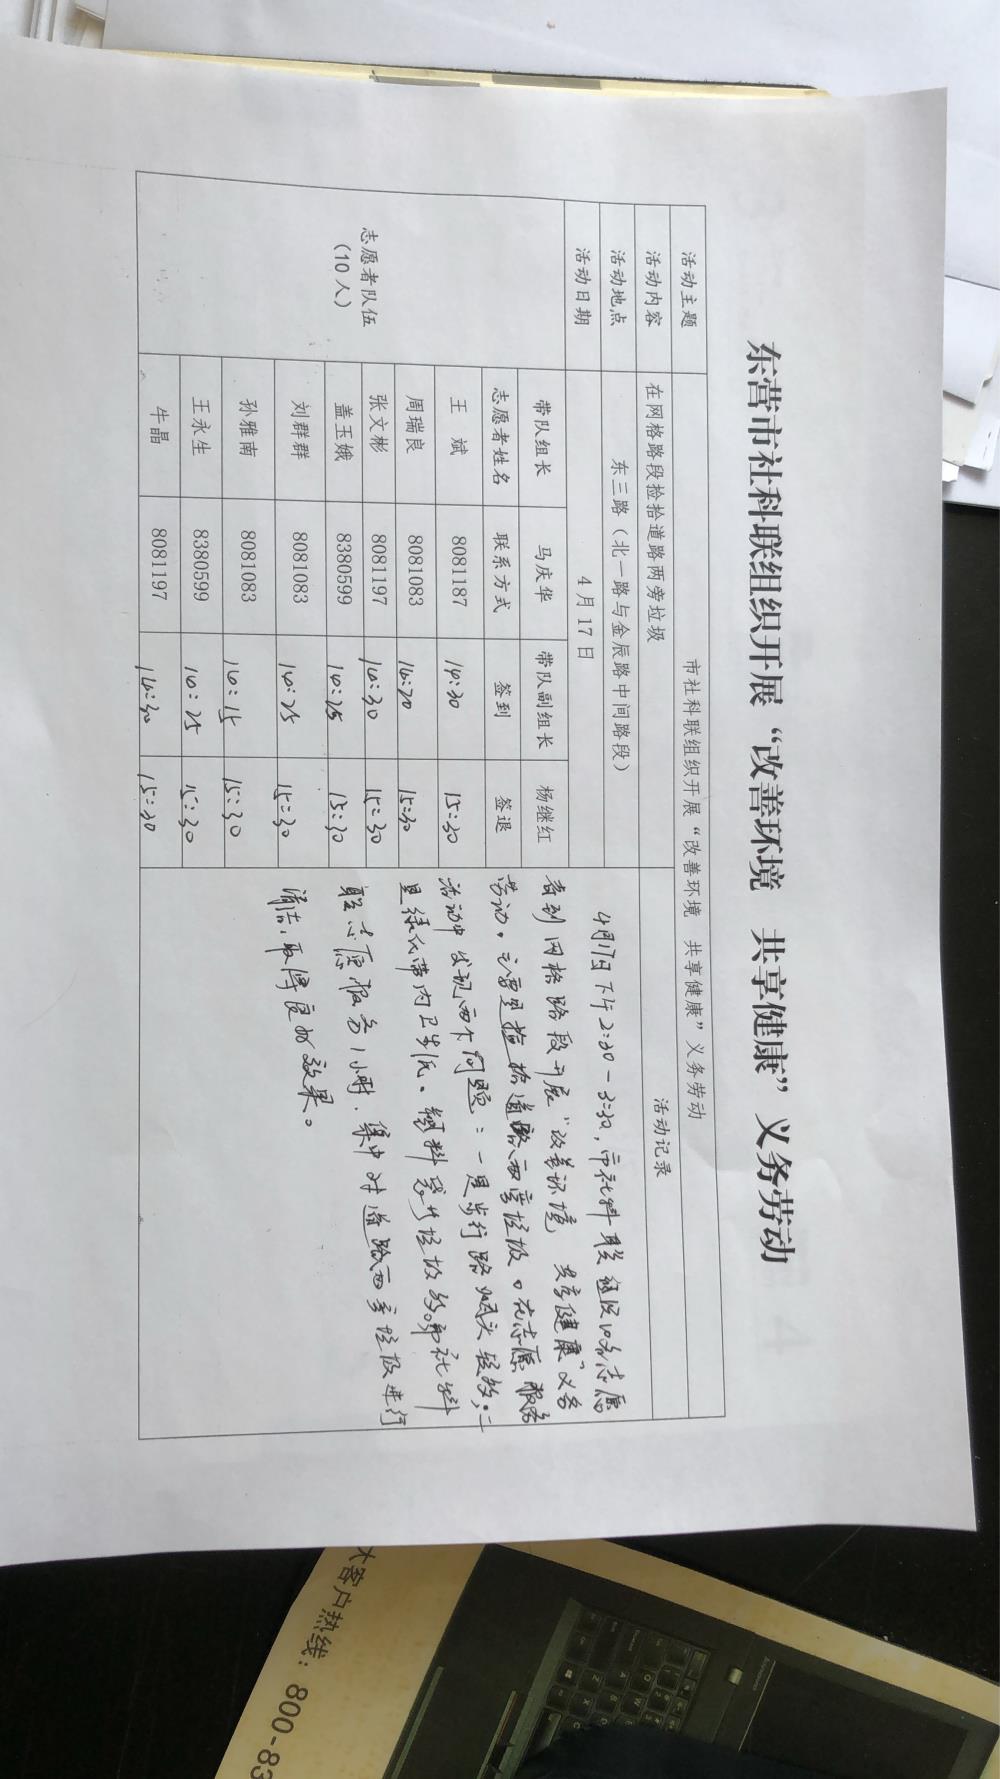 东营市社科联组织开展“改善环境 共享健康”义务劳动
活动主题 市社科联组织开展“改善环境 共享健康”义务劳动
活动内容 在网格路段捡拾道路两旁垃圾 活动记录
活动地点 东三路（北一路与金辰路中间路段）
活动日期 4月17日
志愿者队伍
（10人）
带队组长 马庆华 带队副组长 杨继红
志愿者姓名 联系方式 签到 签退
王 斌 8081187 14:30 15:30
周瑞良 8081083 14:20 15:30
张文彬 8081197 14:30 15:30
盖玉娥 8380599 14:25 15:30
刘群群 8081083 14:25 15:30
孙雅南 8081083 14:15 15:30
王永生 8380599 14:25 15:30
牛晶 8081197 14:30 15:30
4月17日下午2:30-3:30，市社科联组织10名志愿
者到网格路段开展“改善环境 共享健康”义务
劳动。主要是捡拾道路两旁垃圾。在志愿服务
活动中发现两个问题：一是步行路烟头较多；二
是绿化带内卫生纸、塑料袋等垃圾多。市社科
联志愿服务1小时，集中对道路两旁垃圾进行
清洁，取得良好效果。
大客户热线：800-83